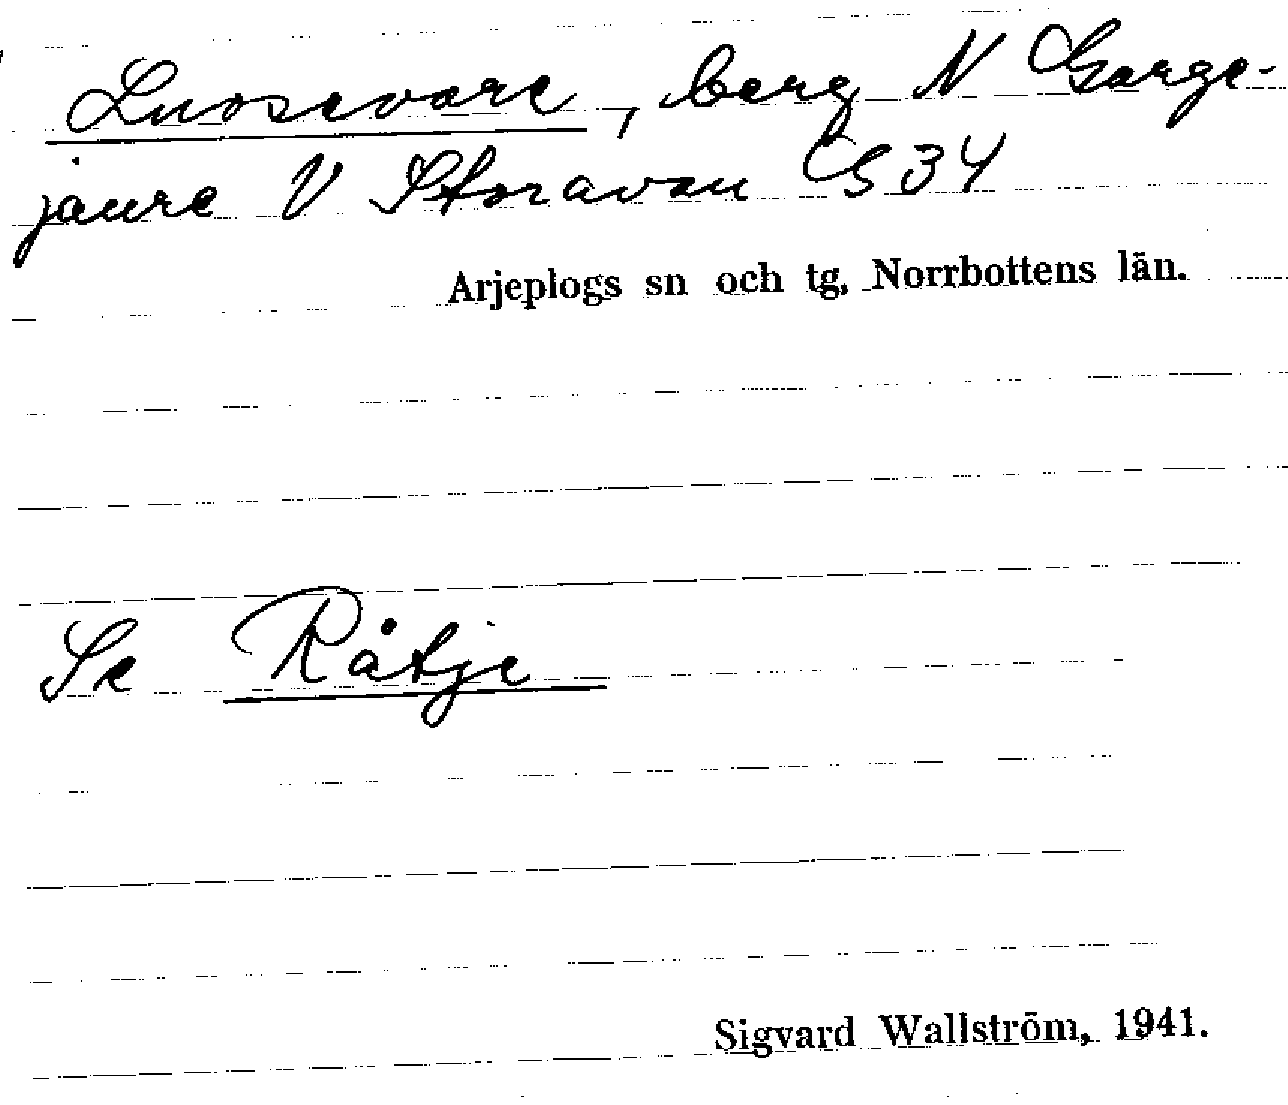 Luossvare, berg N Garge-
jaure V Storavan GS 34
Arjeplogs sn och tg, Norrbottens län.
Se Råtje
Sigvard Wallström, 1941.